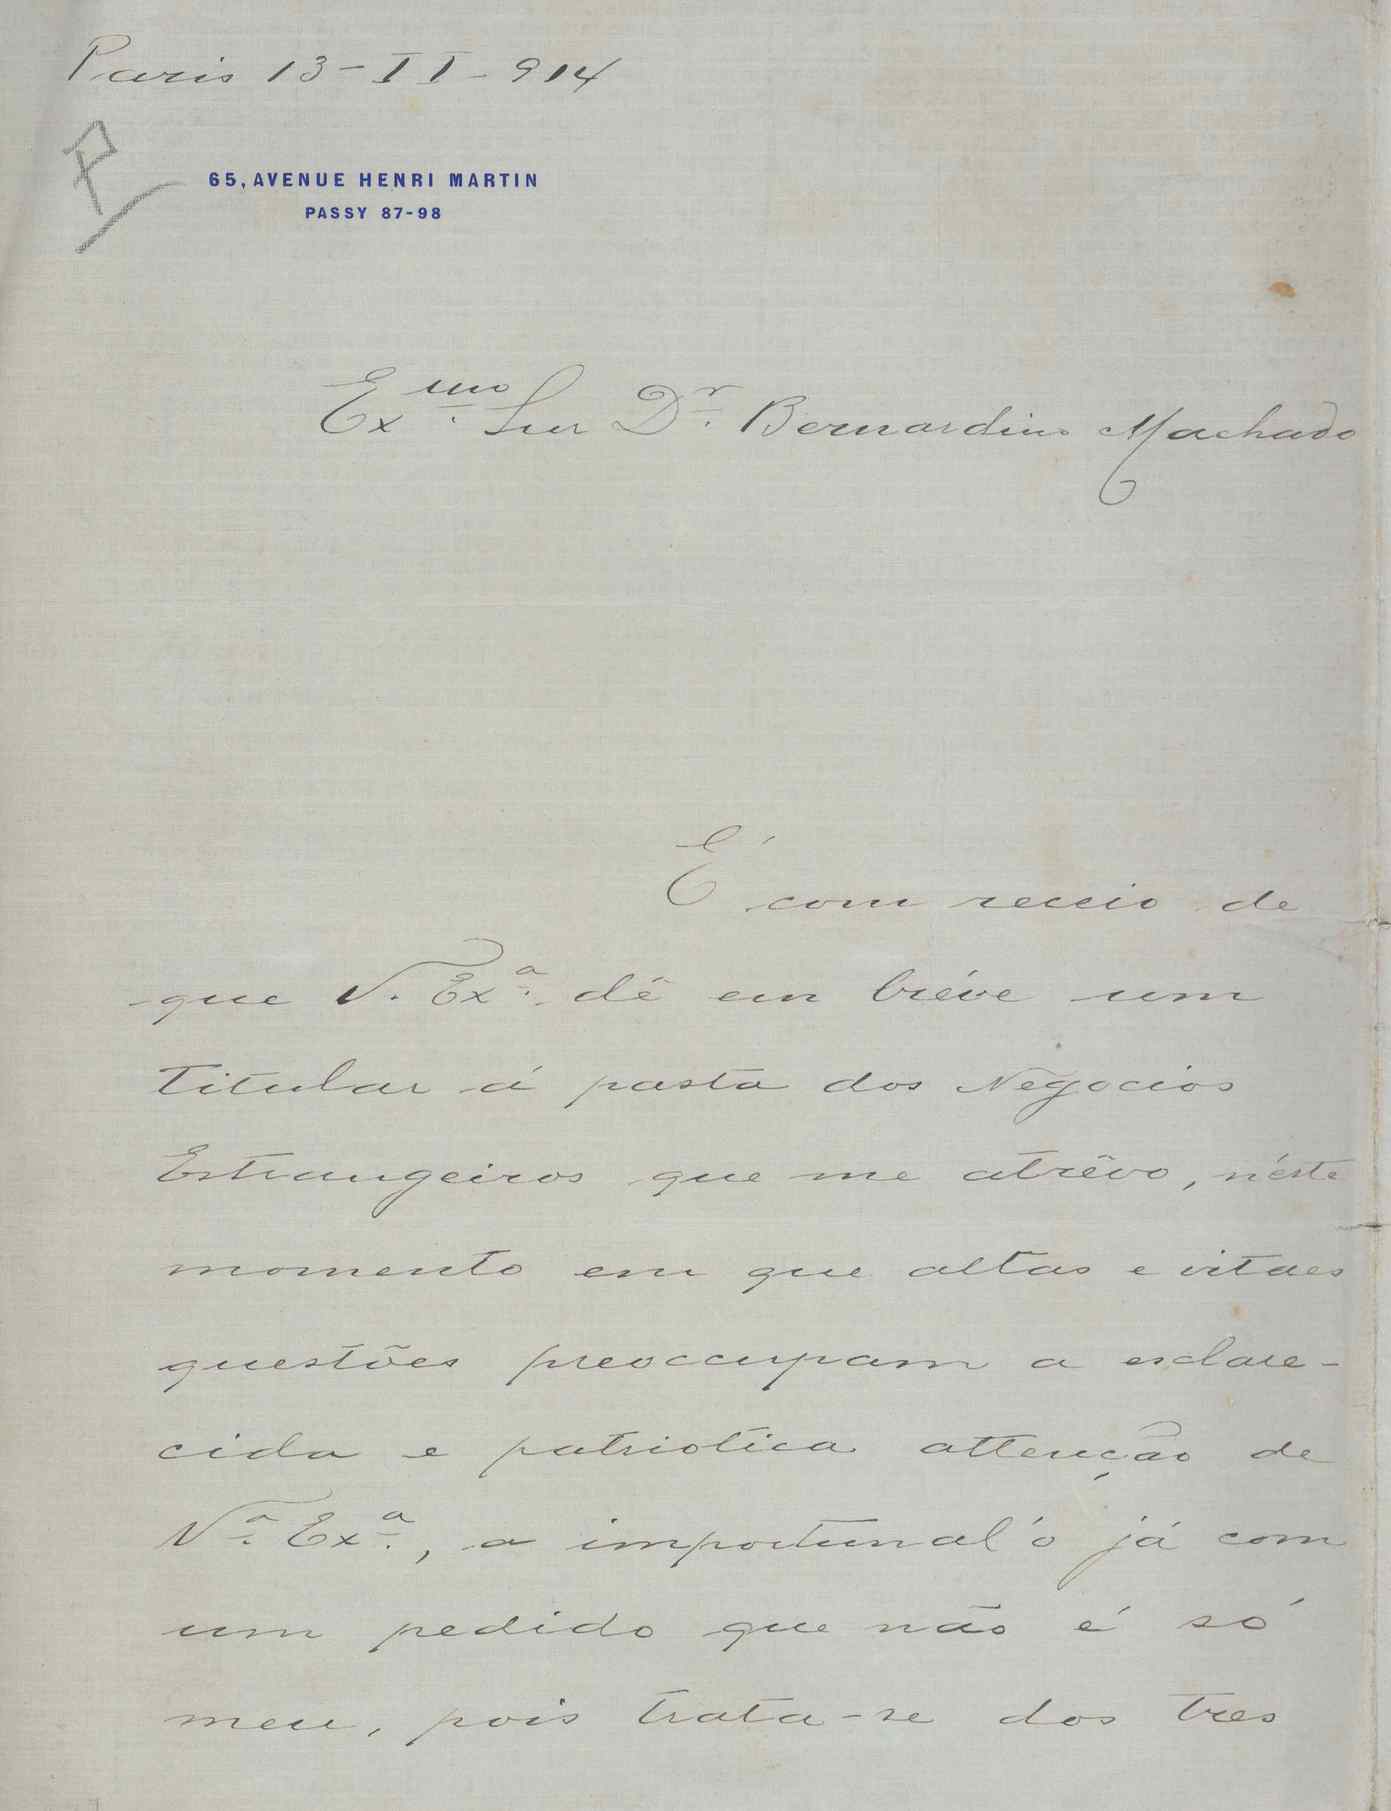 Paris 13-II-914
P
65, AVENUE HENRI MARTIN
PASSY 87-98
Exmo. Snr Dr. Bernardino Machado
É com receio de
que V. Exa. dê em bréve um
titular á pasta dos Negocios
Estrangeiros que me atrêvo, néste
momento em que altas e vitaes
questões preoccupam a esclare-
cida e patriotica attenção de
Va. Exa., a importunal'o já com
um pedido que não é só
meu, pois trata-se dos tres